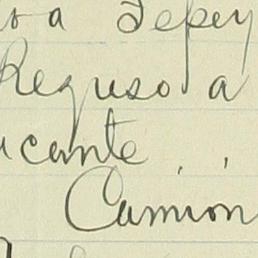 a Tepey
Reguso a
cante
Camión